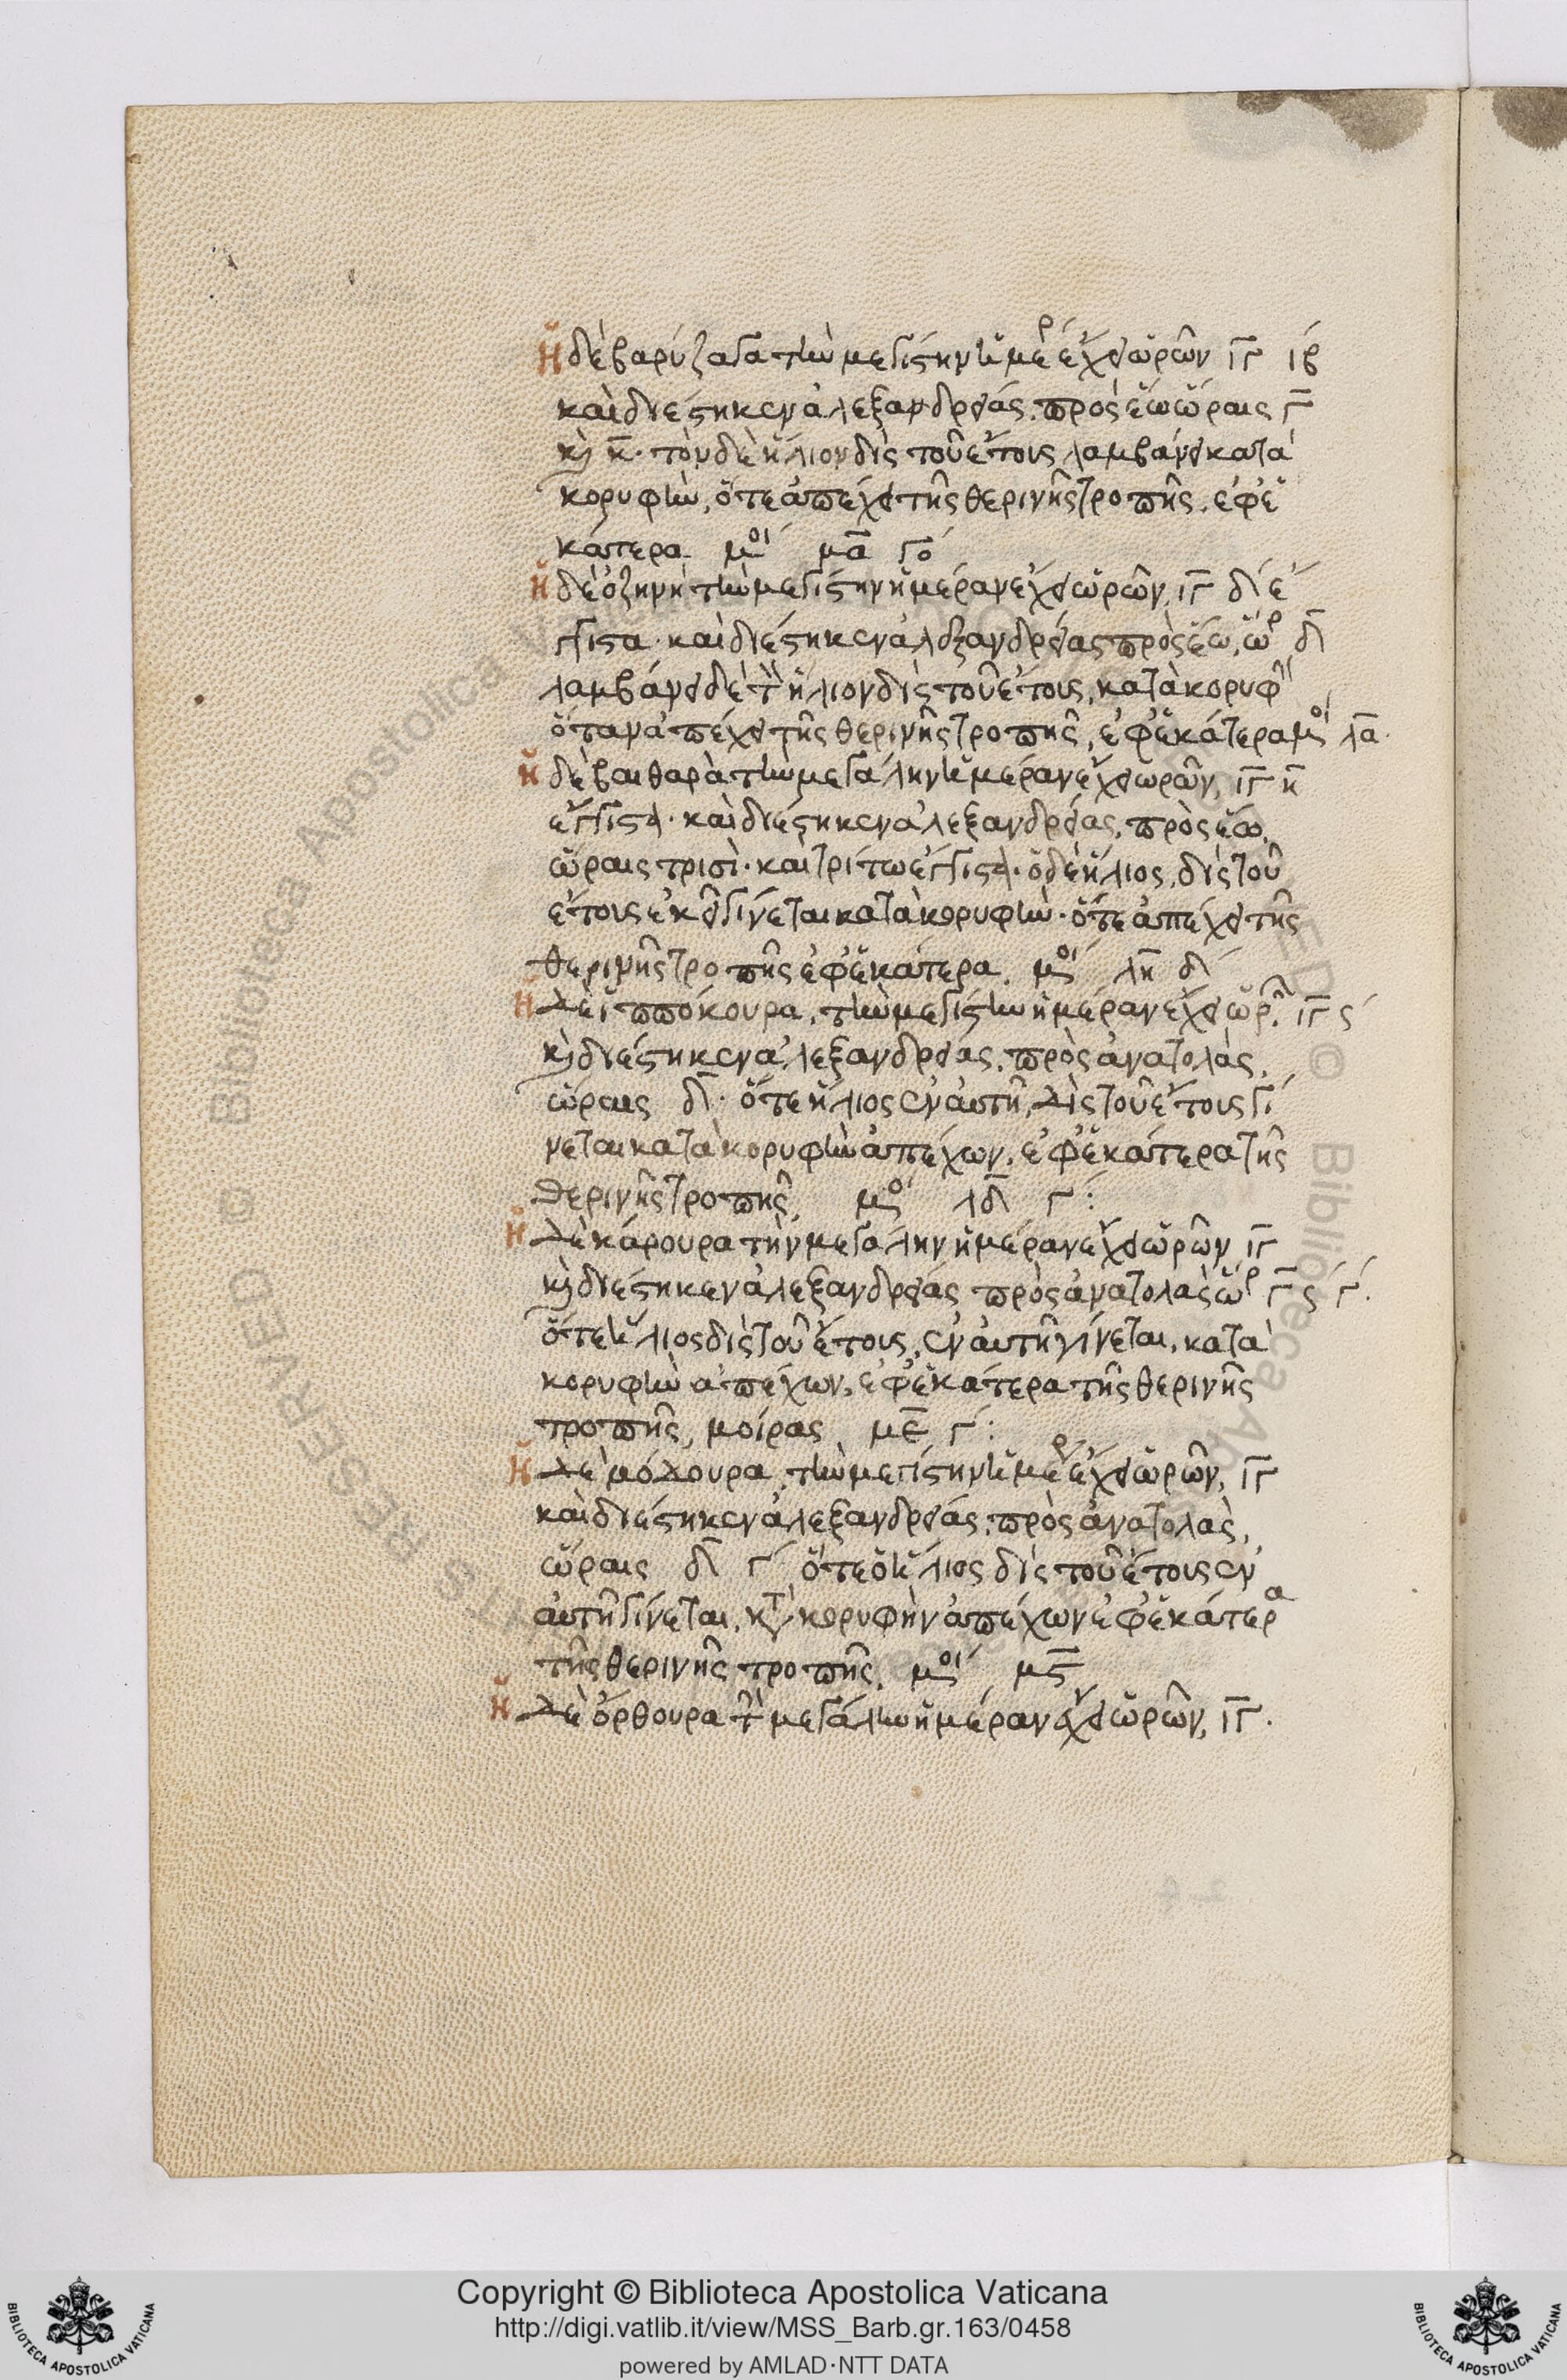 ἡ δὲ βαρύζαγα τὴν μεγίστην ἡμέρ ἔχει ὡρῶν ιγ ιβ
καὶ διέστηκεν ἀλεξανδρείας, πρὸς ἕω ὥραις γ
κὶ κ. τὸν δὲ ἥλιον δὶς τοῦ ἔτους λαμβάνει κατὰ
κορυφὴν, ὅτε ἀπέχει τῆς θερινῆς τροπῆς, ἐφ' ἑ
κάτερα μοί μα γο
ἡ δὲ ὀζηνὴ τὴν μεγίστην ἡμέραν ἔχει ὡρῶν, ιγ δ' ἔ
γγιστα. καὶ διέστηκεν ἀλεξανδρείας πρὸς ἕω, ὥρ δ
λαμβάνει δὲ τὸν ἥλιον δὶς τοῦ ἔτους, κατὰ κορυφὴν
ὅταν ἀπέχει τῆς θερινῆς τροπῆς, ἐφ' ἑκάτερα μοί λα.
ἡ δὲ βαιθαρὰ τὴν μεγάλην ἡμέραν ἔχει ὡρῶν, ιγ η
ἔγγιστα. καὶ διέστηκεν ἀλεξανδρείας, πρὸς ἕω,
ὥραις τρισὶ. καὶ τρίτω ἔγγιστα. ὁ δὲ ἥλιος, δὶς τοῦ
ἔτους ἐκεῖ γίνεται κατὰ κορυφὴν. ὅτε ἀπέχει τῆς
θερινῆς τροπῆς ἐφ' ἑκάτερα, μοί λη δ'
ἡ δὲ ἱππόκουρα, τὴν μεγίστην ἡμέραν ἔχει ὡρῶν, ιγ ς'
κὶ διέστηκεν ἀλεξανδρείας, πρὸς ἀνατολὰς,
ὥραις δ. ὅτε ἥλιος ἐν αὐτῆ, δὶς τοῦ ἔτους γί
νεται κατὰ κορυφὴν ἀπέχων, ἐφ' ἑκάτερα τῆς
θερινῆς τροπῆς, μοί λδ γ' :
ἡ δὲ κάρουρα τὴν μεγάλην ἡμέραν ἔχει ὡρῶν ιγ
κὶ διέστηκεν ἀλεξανδρείας πρὸς ἀνατολὰς ὥρ γ ς' γ'.
ὅτε ἥλιος δὶς τοῦ ἔτους, ἐν αὐτῆ γίνεται, κατὰ
κορυφὴν ἀπέχων, ἐφ' ἑκάτερα τῆς θερινῆς
τροπῆς, μοίρας με γ' :
ἡ δὲ μόδουρα, τὴν μεγίστην ἡμέρ ἔχει ὡρῶν, ιγ
καὶ διέστηκεν ἀλεξανδρείας, πρὸς ἀνατολὰς,
ὥραις δ γ' ὅτε ὁ ἥλιος δὶς τοῦ ἔτους ἐν
αὐτῆ γίνεται, κτ κορυφὴν ἀπέχων ἐφ' ἑκάτερα
τῆς θερινῆς τροπῆς, μοί μς
ἡ δὲ ὄρθουρα τὴν μεγάλην ἡμέραν ἔχει ὡρῶν, ιγ.
Copyright © Biblioteca Apostolica Vaticana
http://digi.vatlib.it/view/MSS_Barb.gr.163/0458
powered by AMLAD·NTT DATA